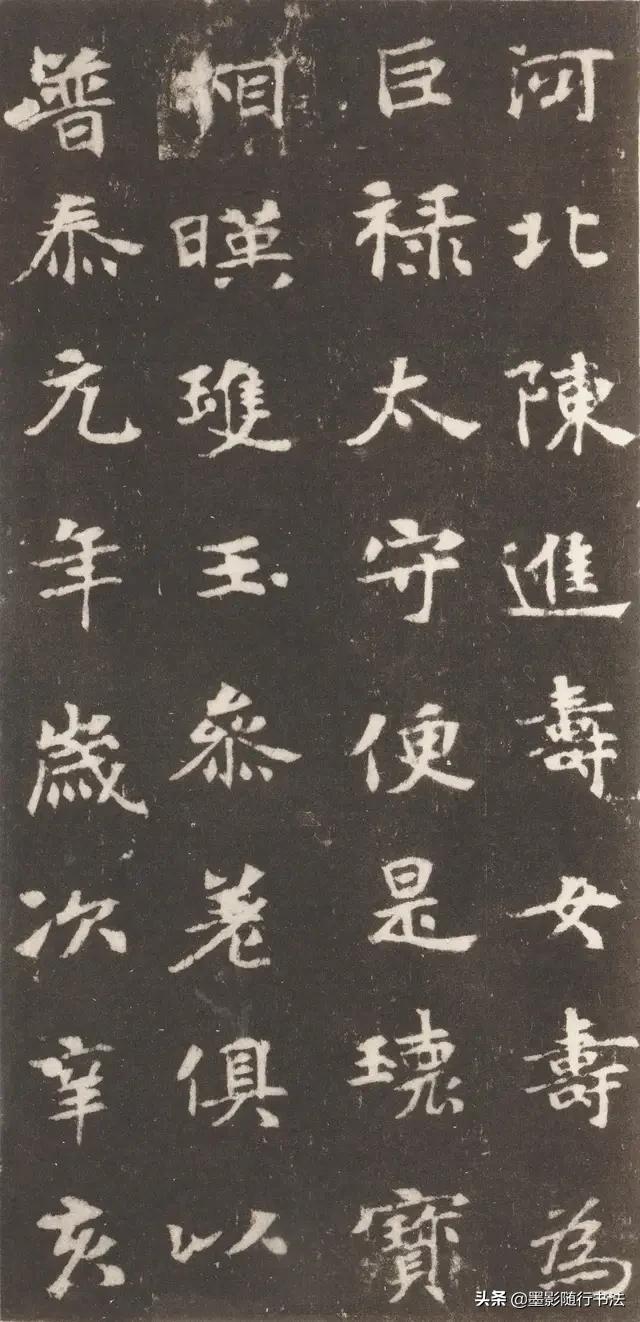 河北陳進壽女壽為
巨祿太守便是瓌寶
相暎瓊玉參差俱以
普泰元年歲次辛亥
头条 @墨影随行书法